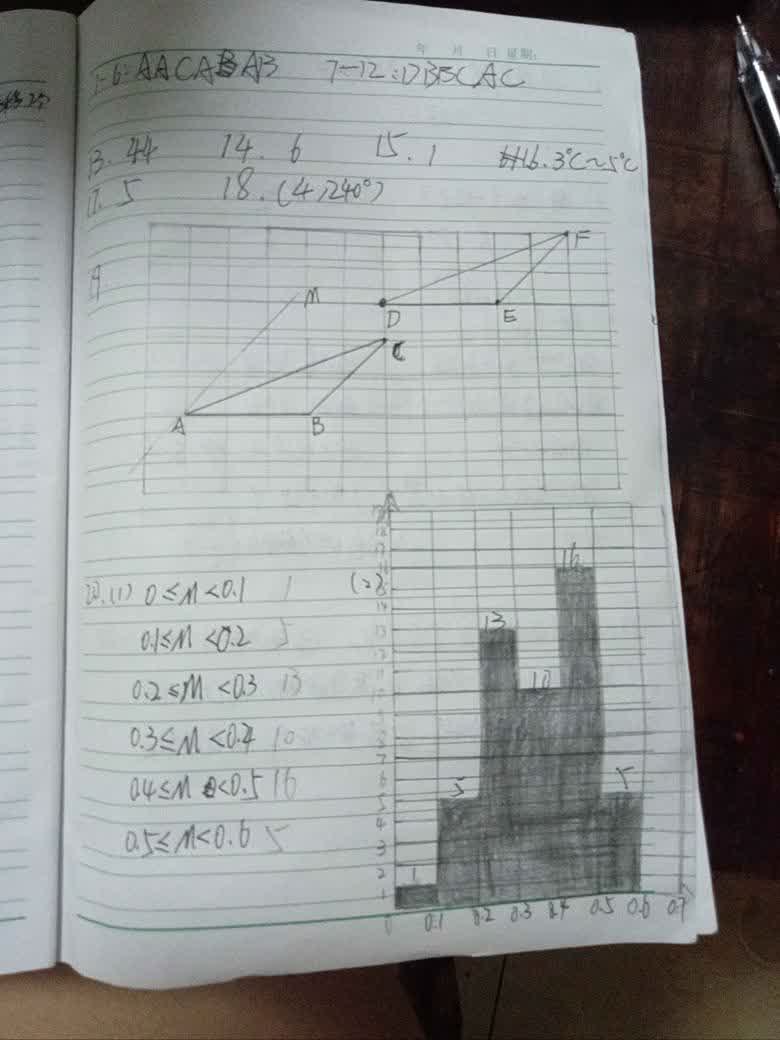 年 月 日 星期:
1-6: AACABAB 7-12: DBBCAC
13. 44 14. 6 15. 1 16. 3℃~5℃
17. 5 18. (4, 240°)
19
F
M
D E
C
A B
20. (1) 0≤M<0.1 1
0.1≤M<0.2 5
0.2≤M<0.3 13
0.3≤M<0.4 10
0.4≤M<0.5 16
0.5≤M<0.6 5
(2)
18
17
16
14
13
12
11
10
9
8
7
6
5
4
3
2
1
16
13
10
5 5
1
0 0.1 0.2 0.3 0.4 0.5 0.6 0.7